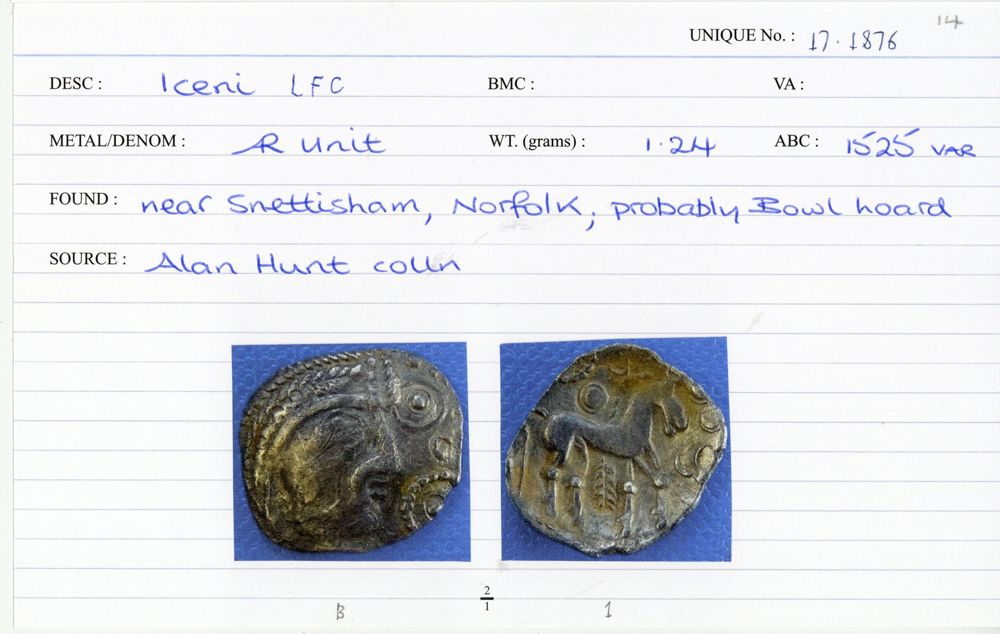 14
UNIQUE No. : 17.1876
DESC : Iceni LFC BMC : VA :
METAL/DENOM : AR Unit WT. (grams) : 1.24 ABC : 1525 VAR
FOUND : near Snettisham, Norfolk, probably Bowl hoard
SOURCE : Alan Hunt colln
2
1
B 1